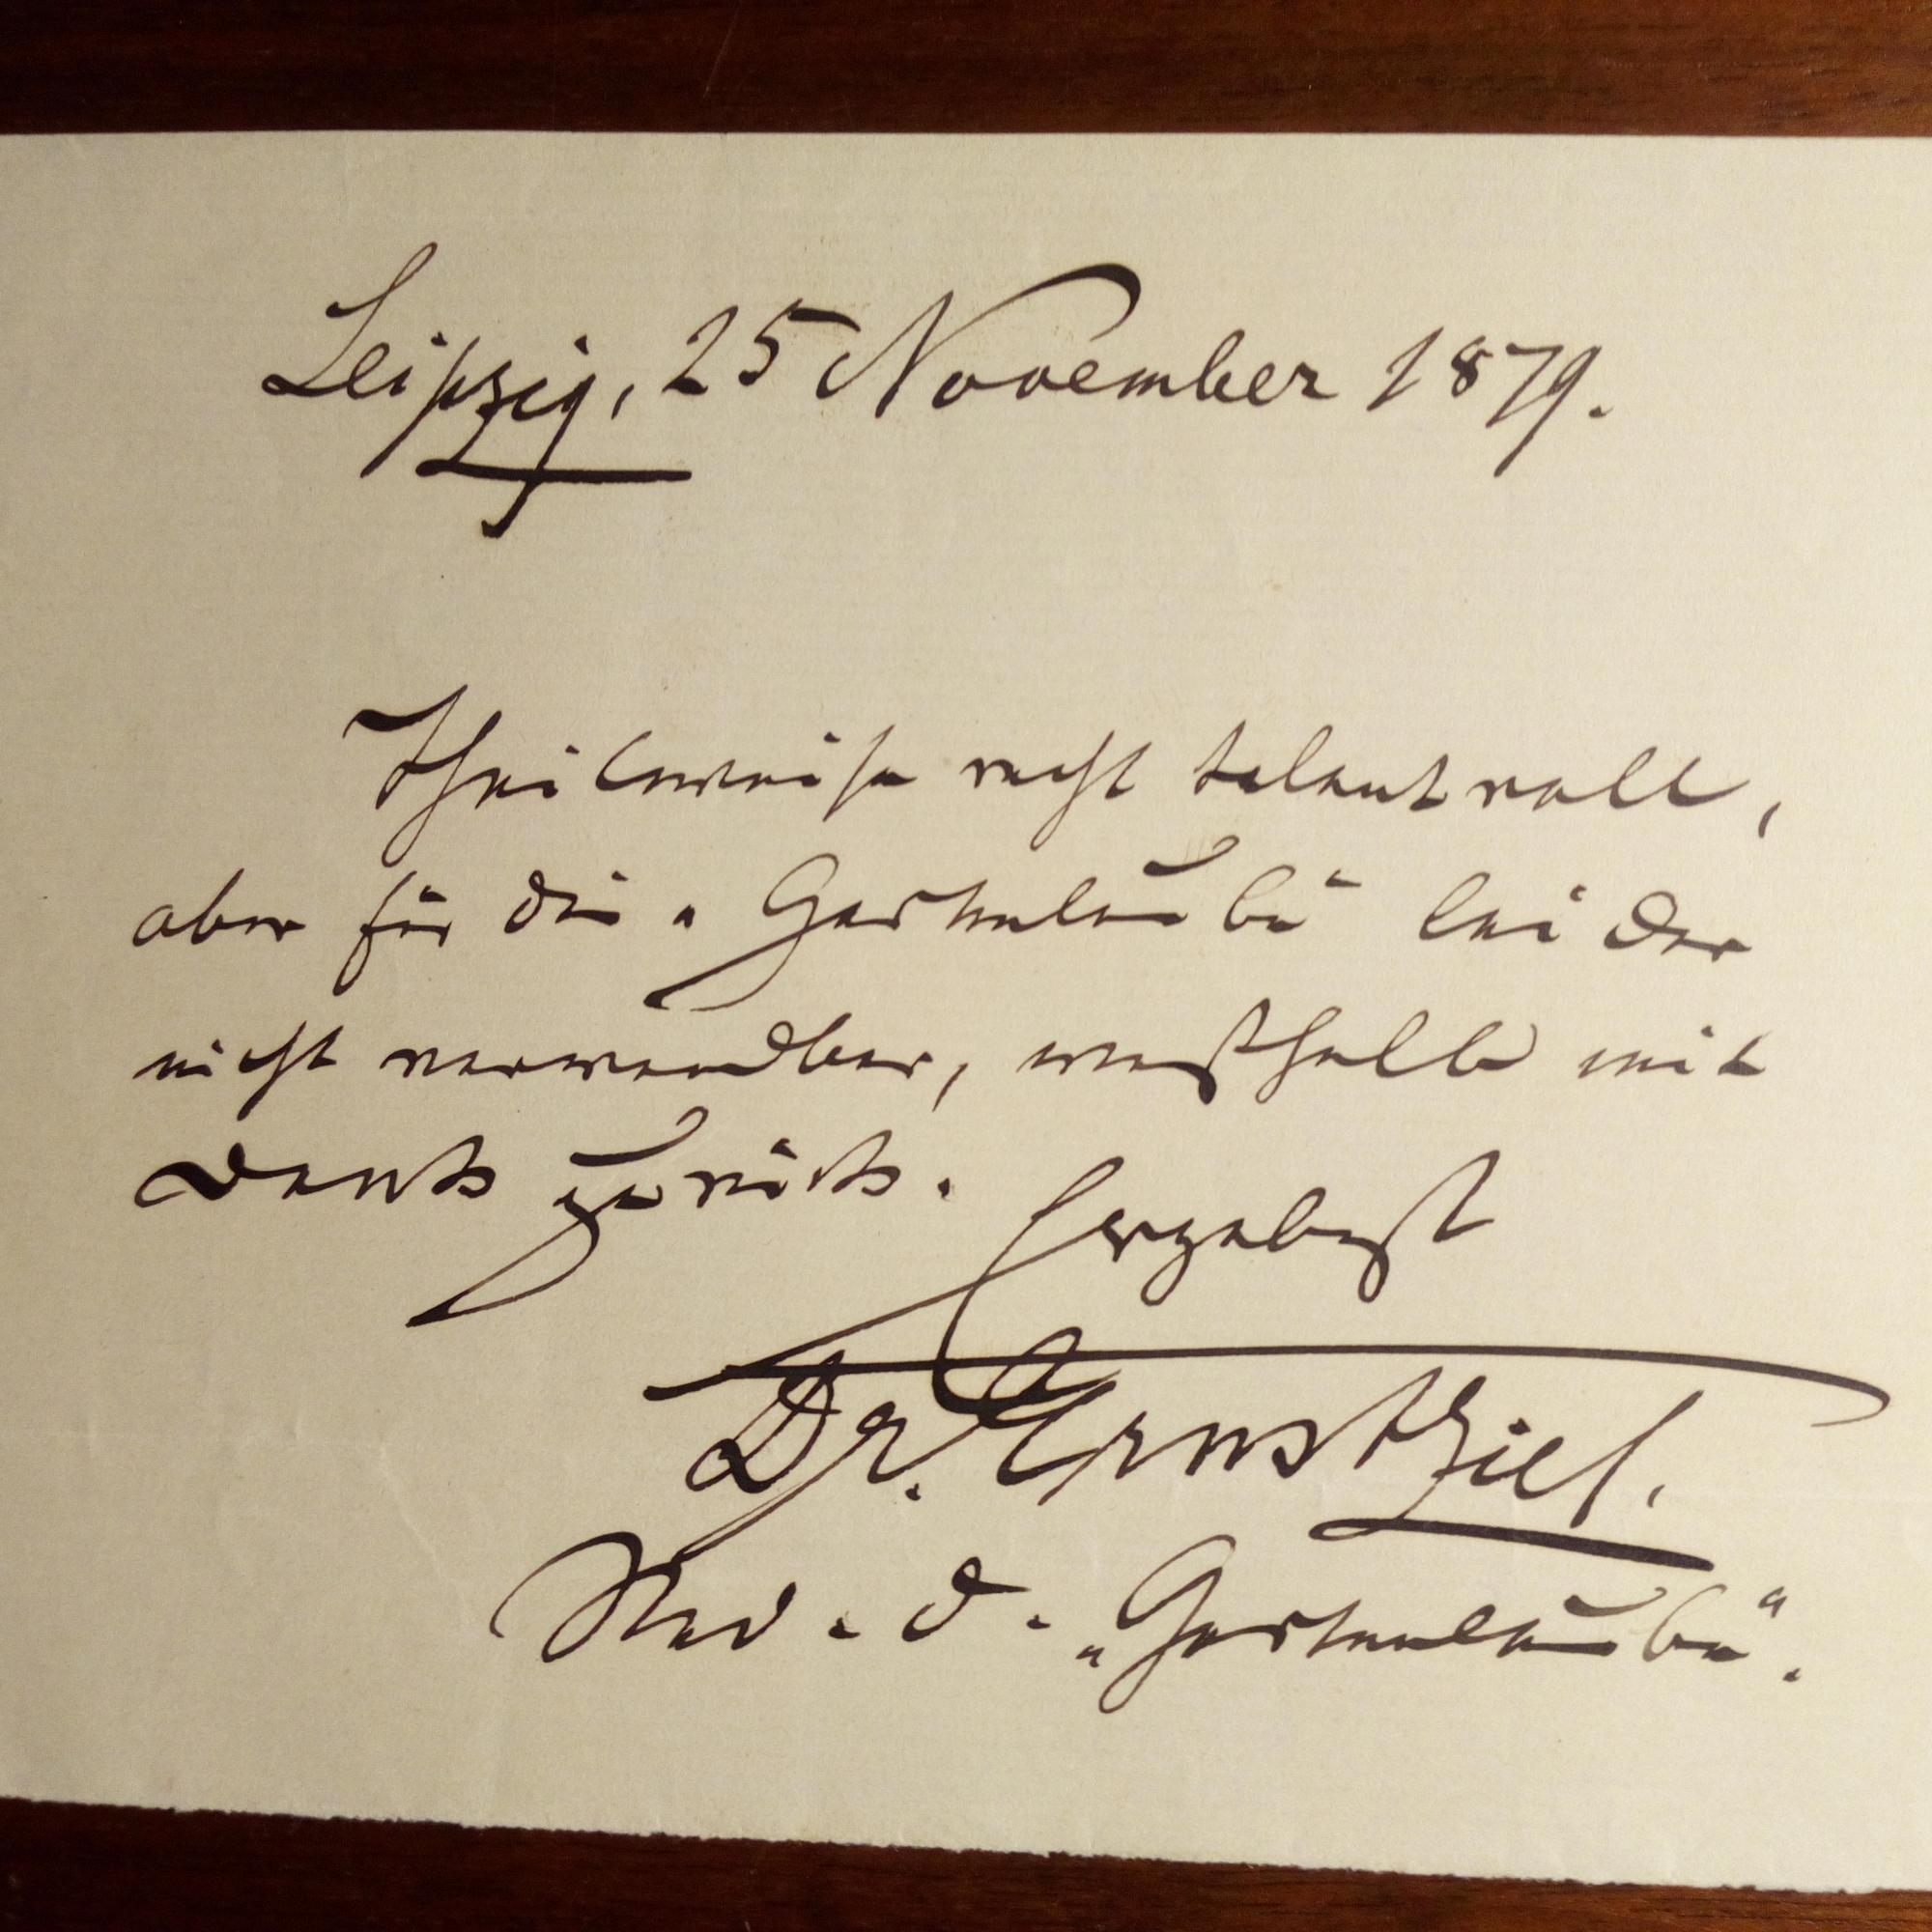 Leipzig, 25 November 1879.
Theilweise recht talentvoll,
aber für die „Gartenlaube" leider
nicht verwendbar, weßhalb mit
Dank zurück.
Ergebenst
Dr. Ernst Ziel.
Red. d. „Gartenlaube".